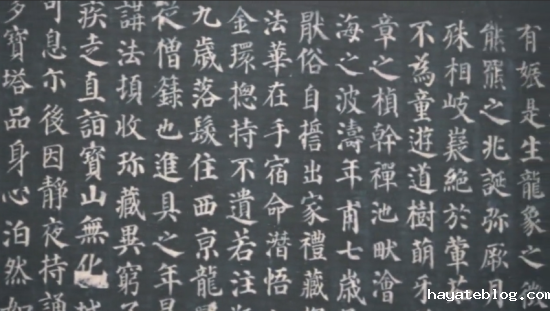 有娠是生龍象之徵
熊羆之兆誕弥厥月
殊相岐嶷絕於葷茹
不為童遊道樹萌牙
章之楨幹禪池畎澮
海之波濤年甫七歲
厭俗自誓出家禮藏
法華在手宿命潛悟
金環揔持不遺若注
九歲落髮住西京龍
從僧籙也進具之年
講法頂收珎藏異窮子
疾走直詣寶山無化
可息尔後因靜夜持誦
多寶塔品身心泊然如
hayateblog.com